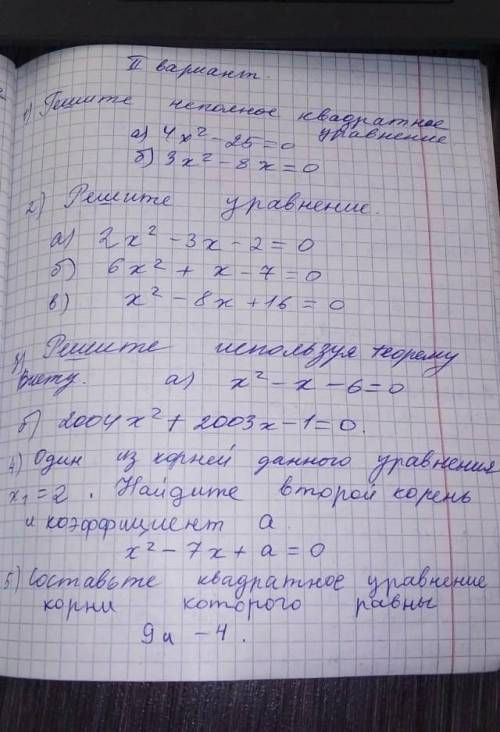 II вариант.
1) Решите неполное квадратное
а) 4x² - 25 = 0 уравнение
б) 3x² - 8x = 0
2) Решите уравнение.
а) 2x² - 3x - 2 = 0
б) 6x² + x - 7 = 0
в) x² - 8x + 16 = 0
3) Решите используя теорему
Виету. а) x² - x - 6 = 0
б) 2004x² + 2003x - 1 = 0.
4) Один из корней данного уравнения
x₁ = 2. Найдите второй корень
и коэффициент а
x² - 7x + a = 0
5) Составьте квадратное уравнение
корни которого равны
9 и -4.